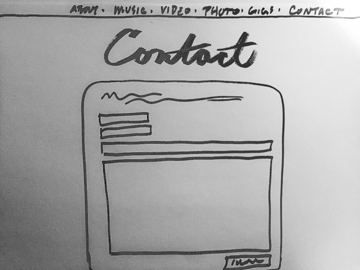 ABOUT · MUSIC · VIDEO · PHOTO · GIGS · CONTACT
Contact